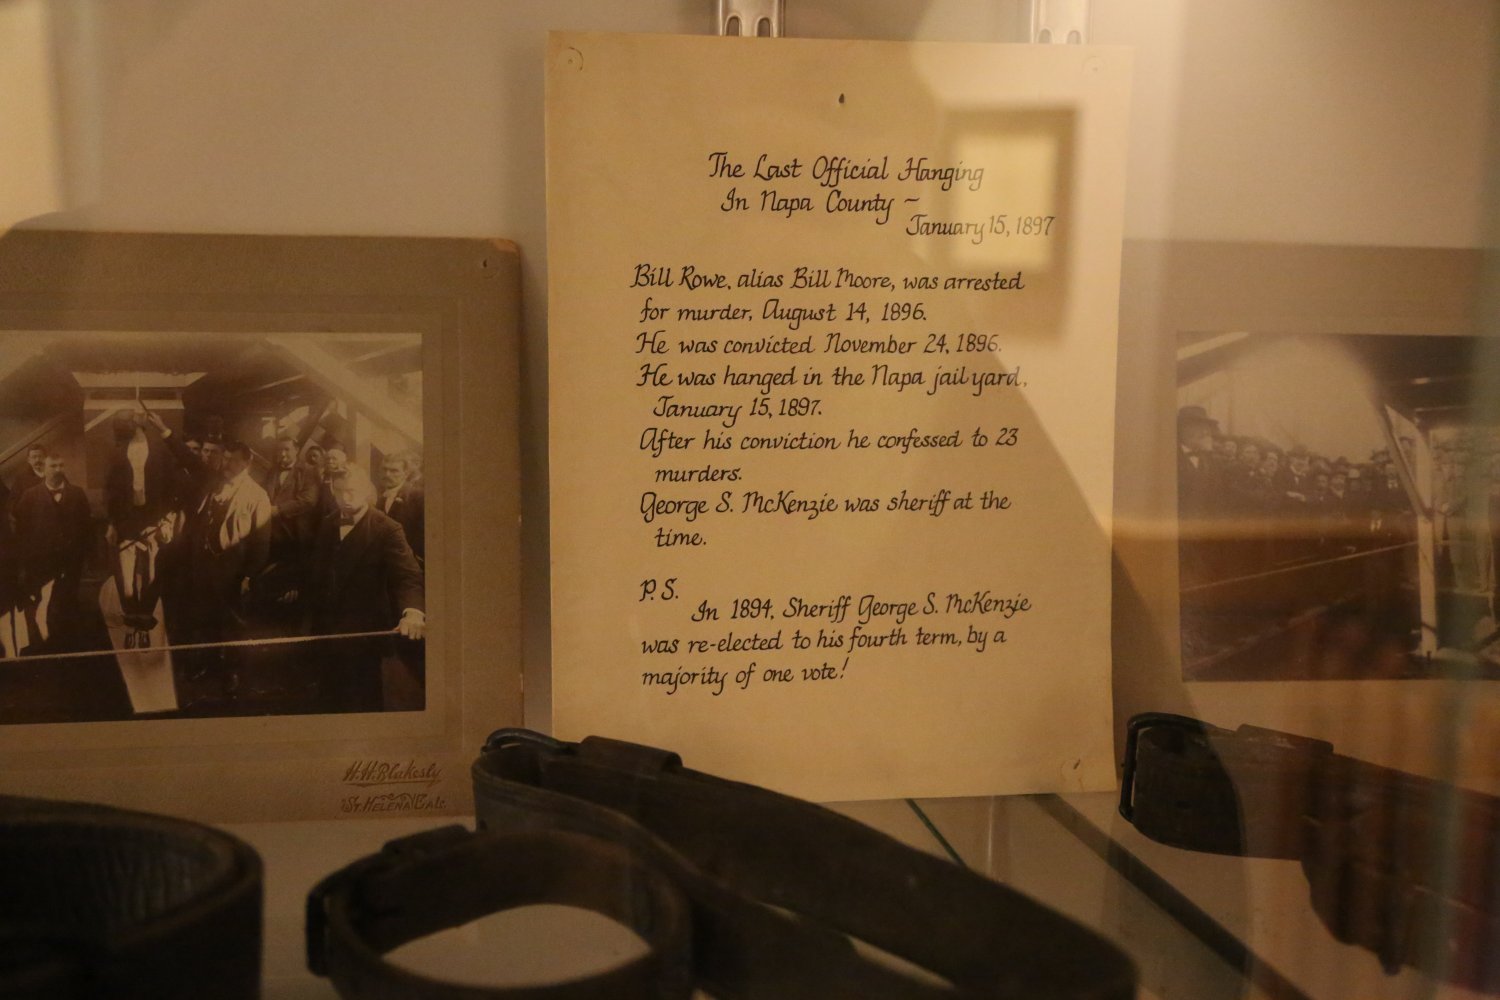 The Last Official Hanging
In Napa County ~
January 15, 1897
Bill Rowe, alias Bill Moore, was arrested
for murder, August 14, 1896.
He was convicted November 24, 1896.
He was hanged in the Napa jail yard,
January 15, 1897.
After his conviction he confessed to 23
murders.
George S. McKenzie was sheriff at the
time.
P.S.
In 1894, Sheriff George S. McKenzie
was re-elected to his fourth term, by a
majority of one vote!
H.H. Blakesly
St. Helena Cal.